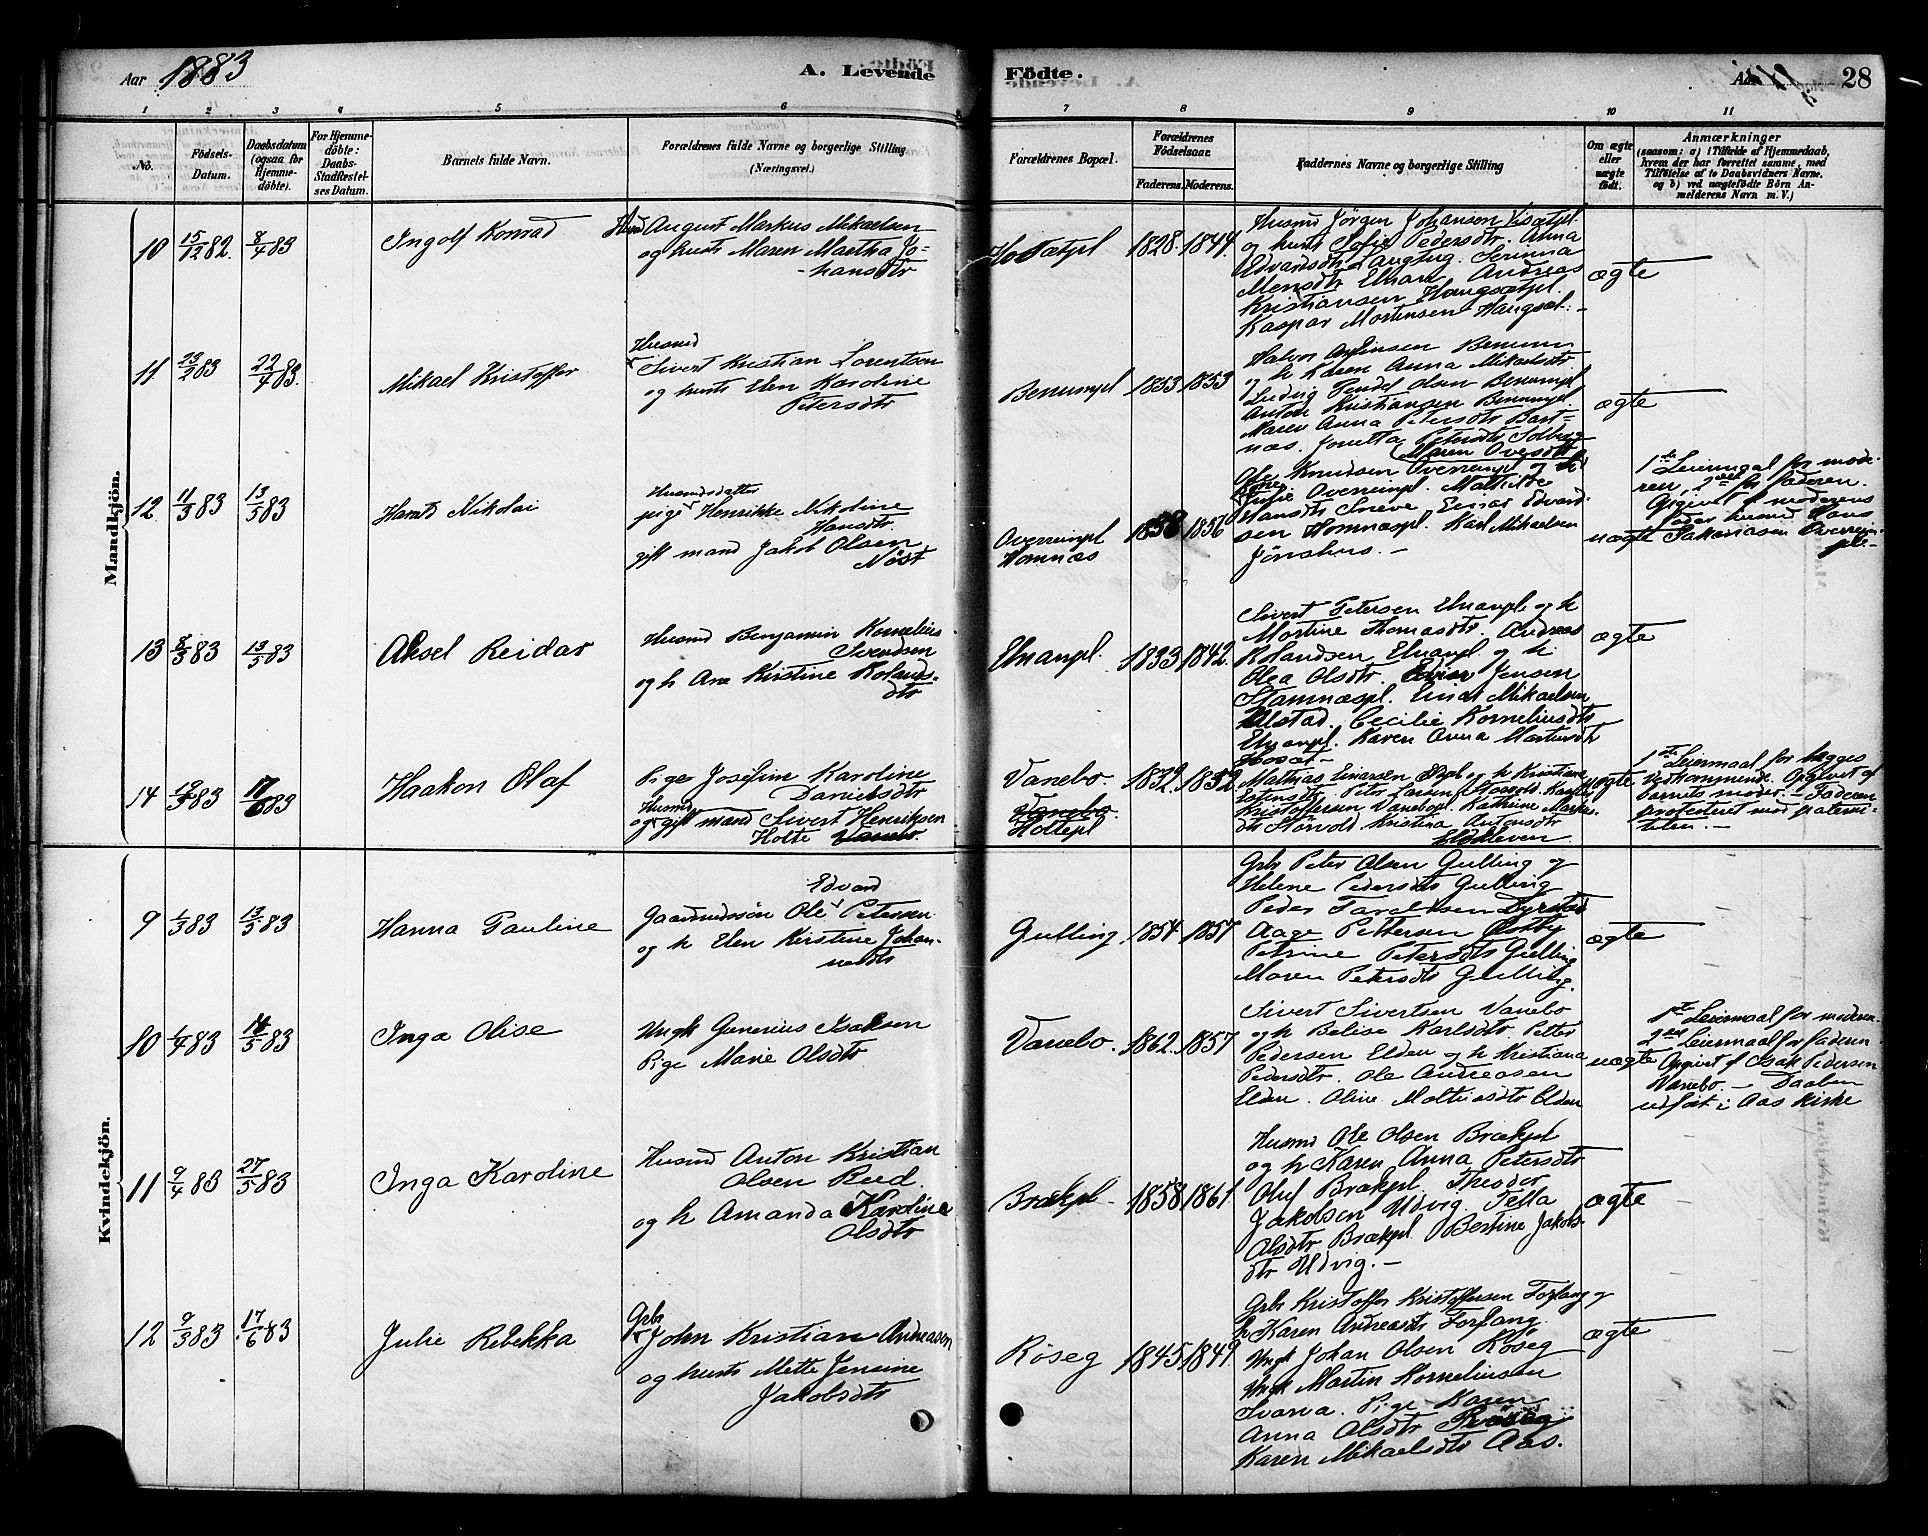 Aar 1883
A. Levende
Födte.
Aar
28
1 2 3 4 5 6 7 8 9 10 11
No.
Födsels-
Datum.
Daabsdatum
(ogsaa for
Hjemme-
döbte).
For Hjemme-
döbte:
Daabs-
Stadfæstel-
ses Datum.
Barnets fulde Navn.
Forældrenes fulde Navne og borgerlige Stilling
(Næringsvei.)
Forældrenes Bopæl.
Forældrenes
Födselsaar.
Faderens. Moderens.
Faddernes Navne og borgerlige Stilling
Om ægte
eller
uægte
födt.
Anmærkninger
(saasom: a) i Tilfælde af Hjemmedaab,
hvem der har forrettet samme, med
Tilföielse af to Daabsvidners Navne,
og b) ved uægtefödte Börn An-
melderens Navn m. V.)
Mandkjön.
10 15/12 82. 8/4 83 Ingolf Konrad
August Markus Mikaelsen
og hust Maren Martha Jo-
hansdtr
1828. 1844.
Husmd Jörgen Johansen
og hust Sofie Pedersdtr. Anna
Andreas
Kristiansen
Kaspar Mortensen
ægte
11 23/2 83 22/4 83. Mikael Kristoffer
Husmd
Sivert Kristian Lorentsen
og hust Elen Karoline
Petersdtr
1853 1853
og h Karen Anna Mikaelsdtr
Ludvig Olsen
Anton Kristiansen
Maren Anna Petersdtr Bart-
næs. Petersdtr
ægte
12 11/3 83 13/5 83 Nikolai
Husmdsdatter
pige Henrikke Nikoline
Hansdtr
gift mand Jakob Olsen
Næst
Homnæs
1858 1856
Maren Ovesdtr
Ole Knudsen
Mathilde
Hansdtr Einar Edvard-
sen Karl Mikaelsen
Jönshus. –
uægte
1ste Leiermaal for mode-
ren, 2det for faderen.
Opgivet af moderens
fader husmd Hans
Sakariasen
13 8/3 83 13/5 83 Aksel Reidar
Husmd Benjamin Kornelius
Svendsen
og h Ane Kirstine Rolands-
dtr
1833 1842.
Sivert Petersen og h
Martine Thomasdtr. Andreas
Rolandsen og h
Olea Olsdtr. Jensen
Mikaelsen
Cecilie Korneliusdtr
Karen Anna
ægte
14 83 17/6 83 Haakon Olaf
Pige Josefine Karoline
Danielsdtr
Husmd
og gift mand Sivert Henriksen
Holte
Vanebo.
Vanebo
Holtepl
1832. 1852.
Mathias Einarsen og h Kristiane
Peter Larsen
Kristoffersen Vanebopl. Kathrine
Kristina Antonsdtr
uægte
1ste Leiermaal for begges
vedkommende. Opgivet af
barnets moder. – Faderen
protesteret mod paterni-
teten. –
Kvindekjön.
9 1/3 83 13/5 83 Hanna Pauline
Edvard
Gaardmdssön Ole Petersen
og h Elen Kirstine Johan-
nesdtr
Gulling. 1854. 1857
Grbr Peter Olsen Gulling og
Helene Pedersdtr Gulling
Peder
Aage Pettersen
Petrine Petersdtr Gulling
Maren Petersdtr Gulling.
ægte
10 1/4 83 14/5 83 Inga Olise
Ungk Gunerius Isaksen
Pige Marie Olsdtr
Vanebo. 1862. 1857
Sivert Sivertsen Vanebo
og h Belise Karlsdtr. Petter
Pedersen Elden og h Kristiana
Pedersdtr. Ole Andreasen
Elden. Oline Mathiasdtr Elden
uægte
1ste Leiermaal for moderen.
2det Leiermaal for faderen.
Opgivet af Isak Pedersen
Vanebo. – Daaben
udført i Aas Kirke
11 9/4 83 27/5 83 Inga Karoline
Husmd Anton Kristian
Olsen
og h Amanda Karoline
Olsdtr
Brækpl 1858 1861.
Husmd Ole Olsen Brækpl
og h Karen Anna Petersdtr
Oluf Brækpl. Theodor
Jakobsen Utvig.
Olsdtr Brækpl. Bertine Jakobs-
dtr Utvig. –
ægte
12 9/3 83 17/6 83 Julie Rebekka
Grbr
John Kristian Andreasen
og hust Mette Jensine
Jakobsdtr
Röseg 1845. 1849.
Grbr Kristoffer Kristoffersen Forfang og
h Karen Andreasdtr Forfang.
Ungk Johan Olsen Röseg
Ungk Martin Korneliussen
Svarva. Pige Karen
Anna Olsdtr Röseg
Karen Mikaelsdtr Aas.
ægte